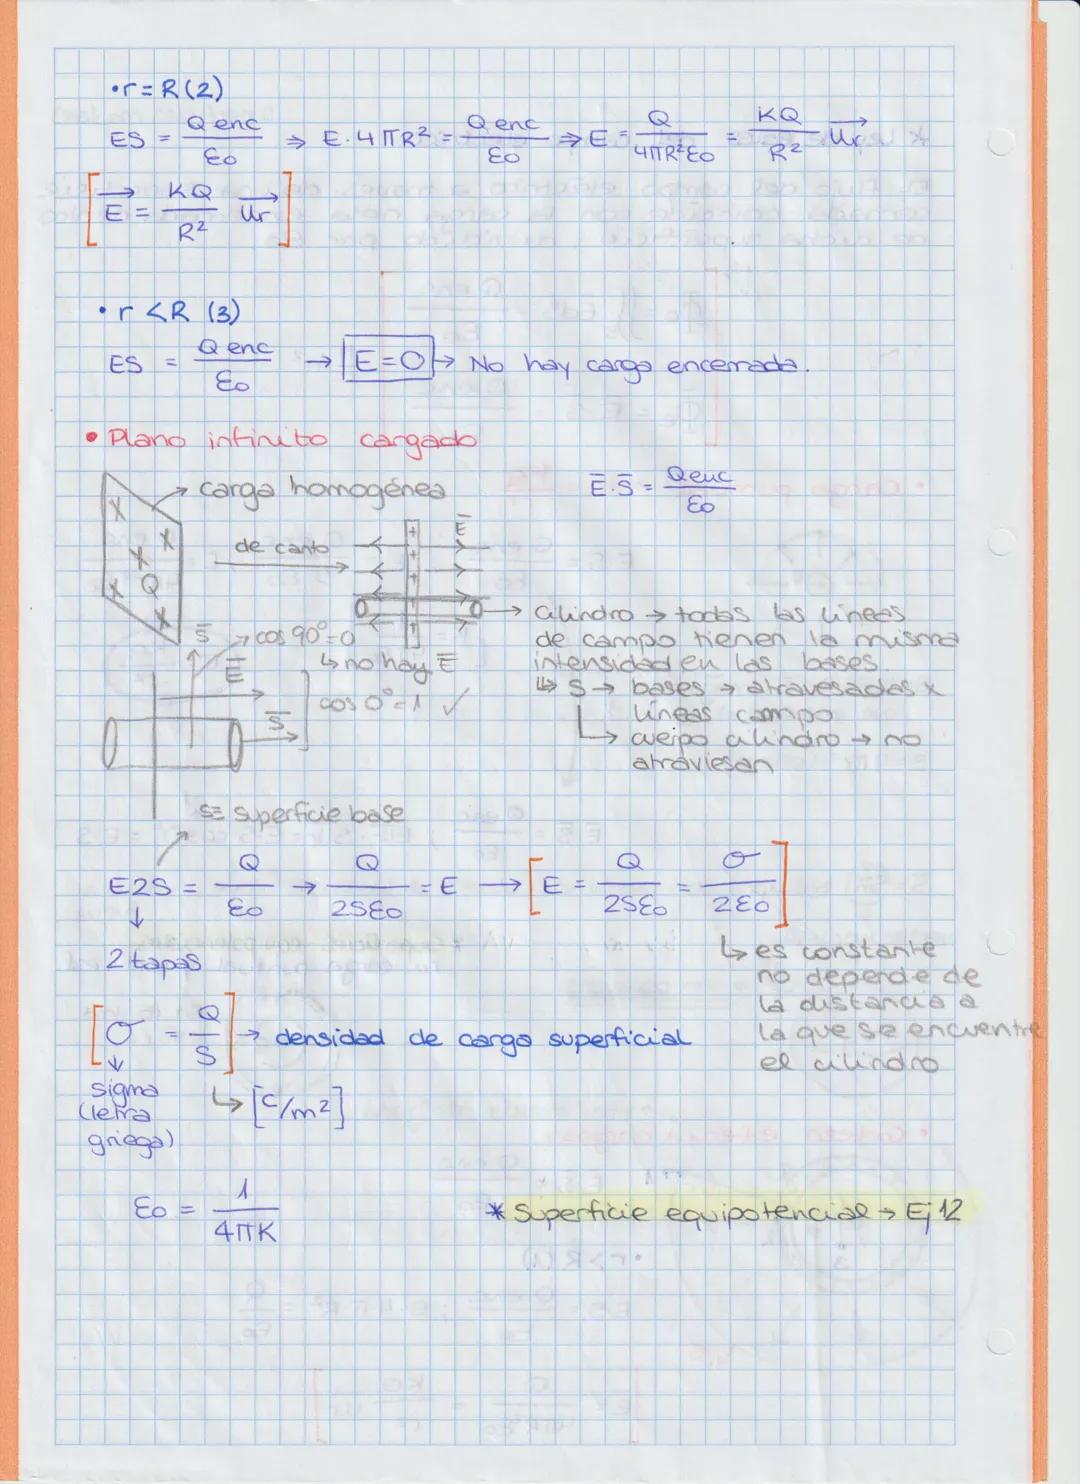 •r=R(2)
ES = Q enc / ε0 ⇒ E·4πR² = Q enc / ε0 ⇒ E = Q / 4πR²ε0 = KQ / R² Ur
[E = KQ / R² Ur]
•r<R (3)
ES = Q enc / ε0 → E=0 → No hay carga encerrada.
• Plano infinito cargado
→ carga homogénea
E·S = Qenc / ε0
x
x
x
x Q
x
de canto
E
+
+
+
+
→ cilindro → todas las líneas
de campo tienen la misma
intensidad en las bases.
↳ S → bases → atravesadas x
líneas campo
↳ cuerpo cilindro → no
atraviesan
S
→ cos 90º=0
↳ no hay E
E
cos 0º=1 ✓
S
S≡ superficie base
E2S = Q / ε0 → Q / 2Sε0 = E → [E = Q / 2Sε0 = σ / 2ε0]
↓
2 tapas
↳ es constante
no depende de
la distancia a
la que se encuentre
el cilindro
[σ = Q / S] → densidad de carga superficial
↓
sigma
(letra
griega)
↳ [C/m²]
ε0 = 1 / 4πK
* Superficie equipotencial → Ej 12